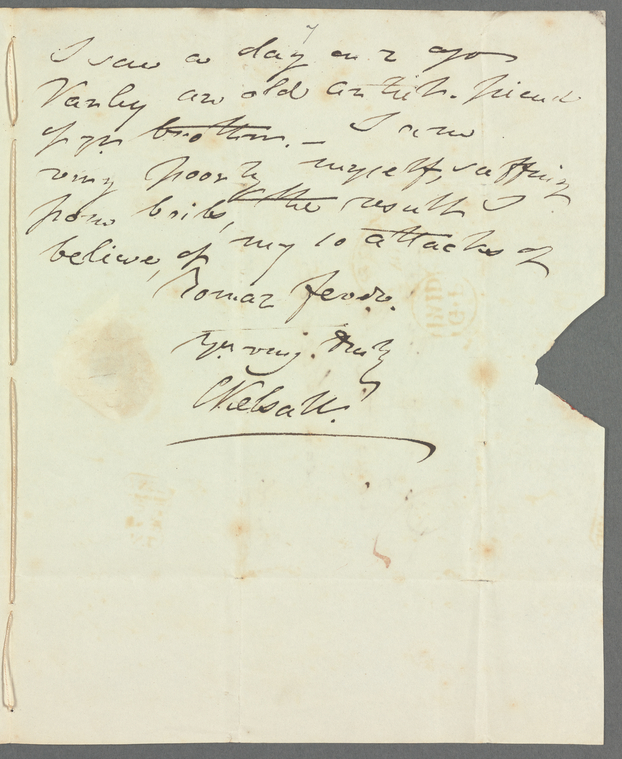 I saw a day or 2 ago
Varley an old artist. friend
of yr. brother. — I am
very poorly myself, suffering
from boils, the result I
believe, of my 10 attacks of
Roman fever.
Yrs very truly
C Kelsall.